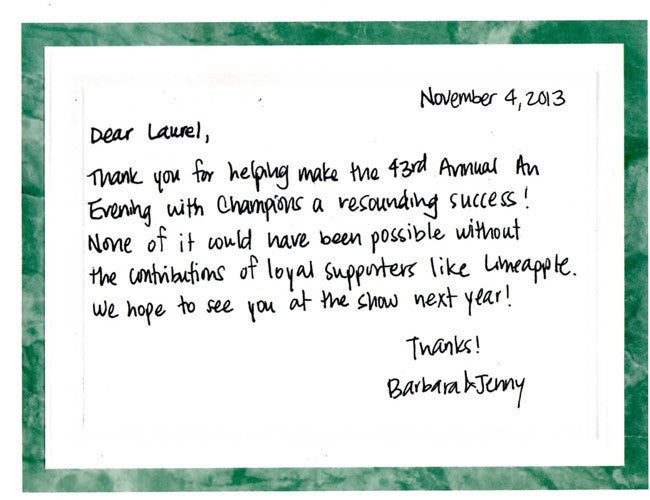 November 4, 2013
Dear Laurel,
Thank you for helping make the 43rd Annual An
Evening with Champions a resounding success!
None of it would have been possible without
the contributions of loyal supporters like Limeapple.
We hope to see you at the show next year!
Thanks!
Barbara & Jenny